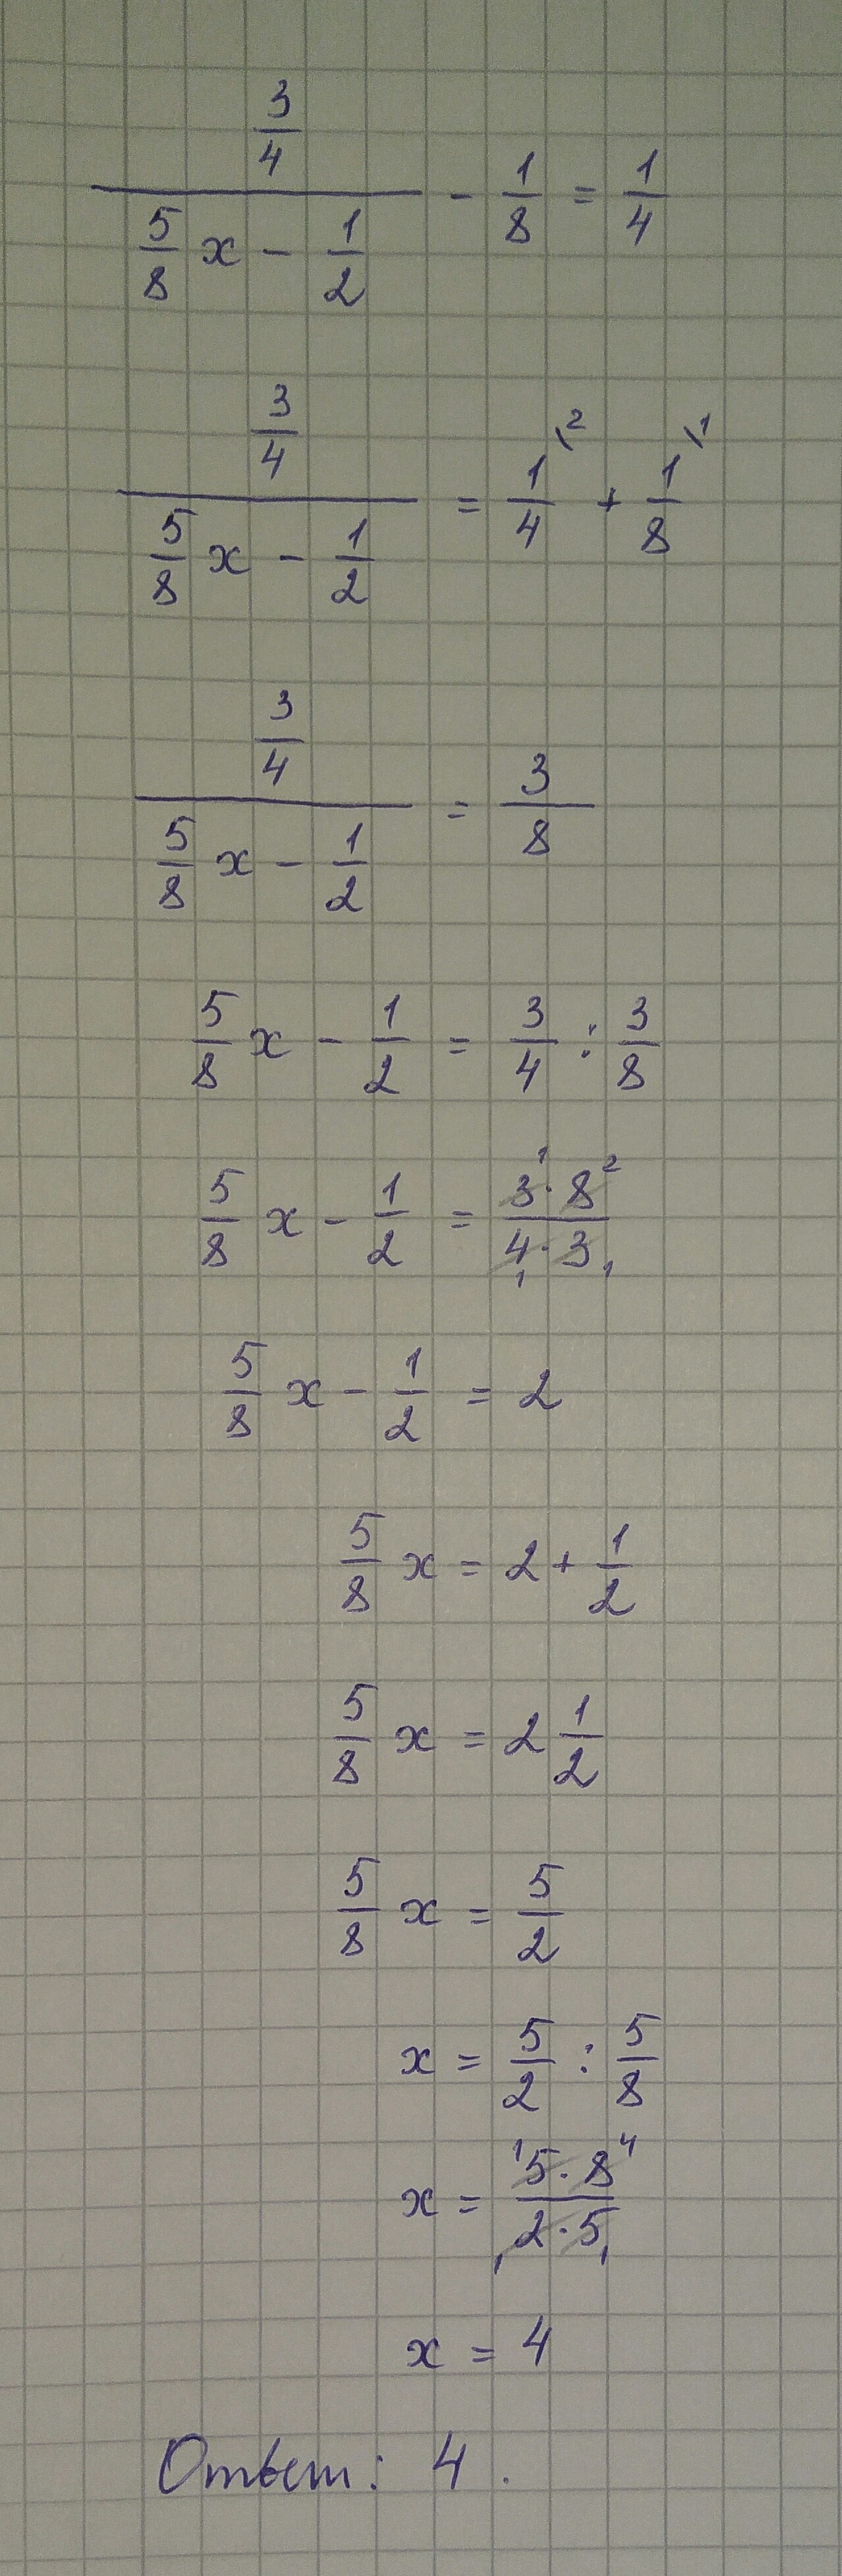 (3/4)/(5/8 x - 1/2) - 1/8 = 1/4
(3/4)/(5/8 x - 1/2) = 1/4\2 + 1/8\1
(3/4)/(5/8 x - 1/2) = 3/8
5/8 x - 1/2 = 3/4 : 3/8
5/8 x - 1/2 = 3¹·8²/4₁·3₁
5/8 x - 1/2 = 2
5/8 x = 2 + 1/2
5/8 x = 2 1/2
5/8 x = 5/2
x = 5/2 : 5/8
x = ¹5·8⁴/₁2·5₁
x = 4
Ответ: 4.